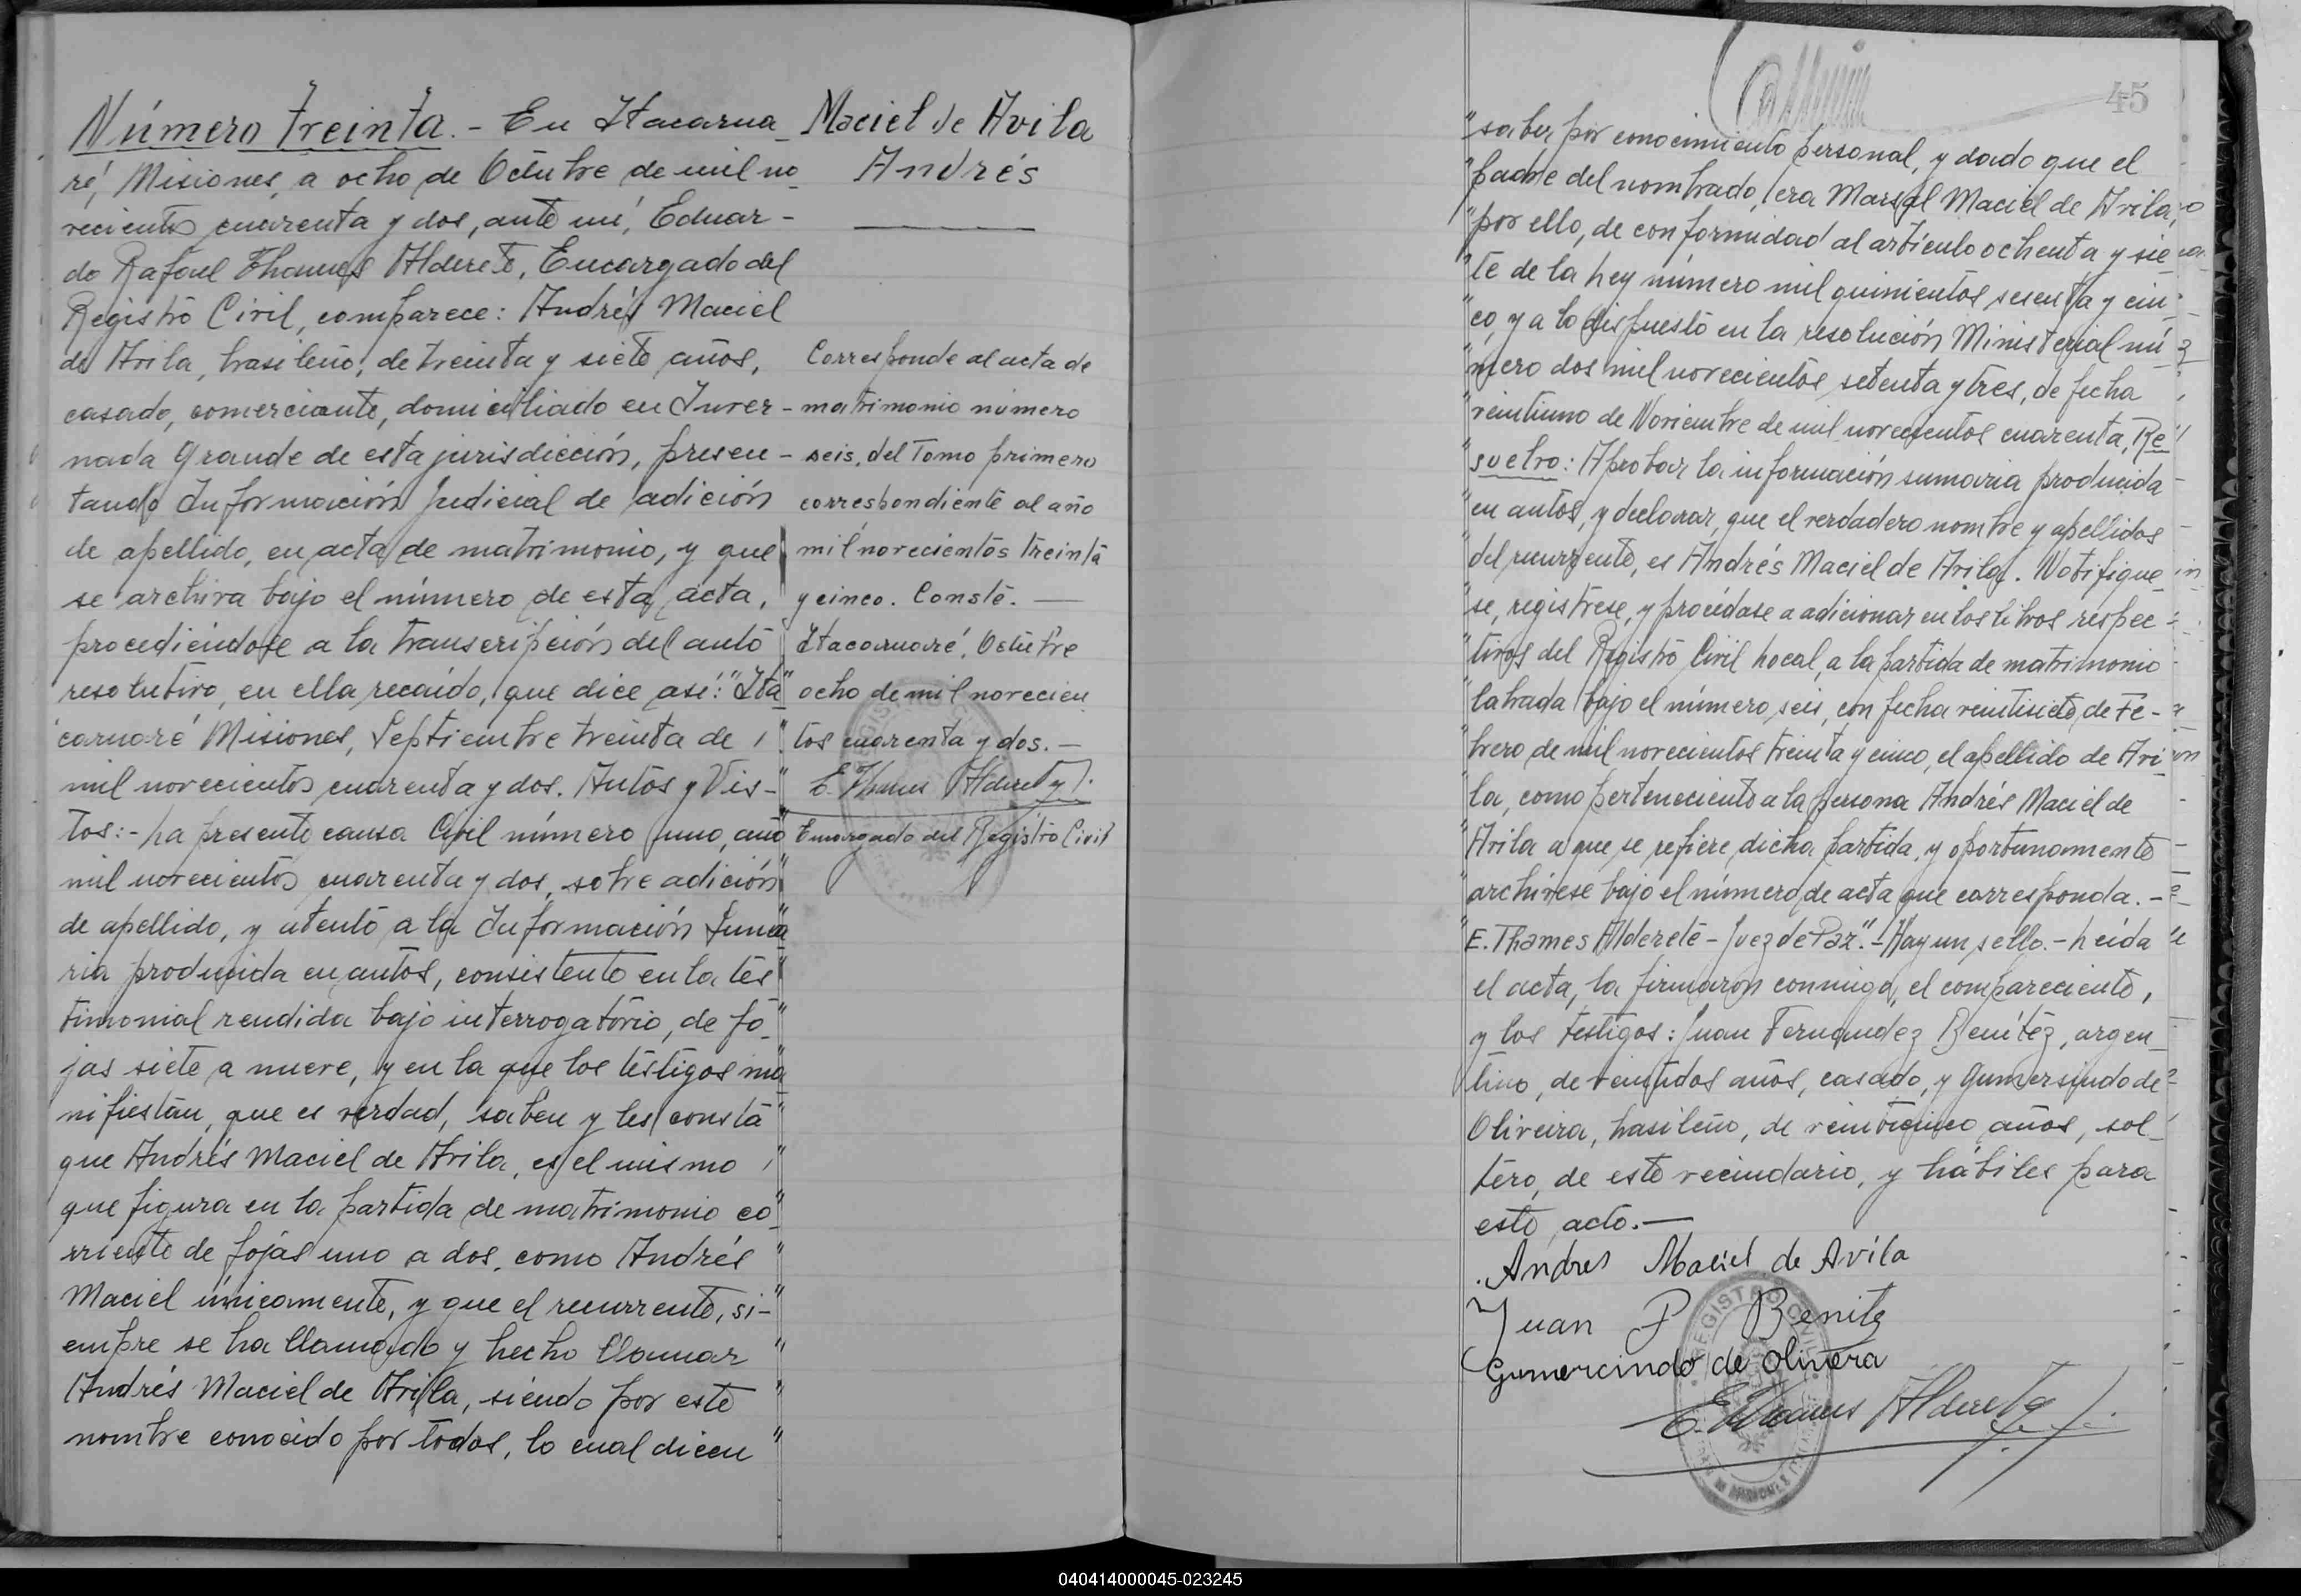 Número treinta. - En Itacarua_
ré, Misiones, a ocho de Octubre de mil no_
vecientos cuarenta y dos, ante mí, Eduar-
do Rafael Thames Alderete, Encargado del
Registro Civil, comparece: Andrés Maciel
de Avila, brasileño, de treinta y siete años,
casado, comerciante, domiciliado en Inver-
nada Grande de esta jurisdicción, presen-
tando Información Judicial de adición
de apellido, en acta de matrimonio, y que
se archiva bajo el número de esta acta,
procediéndose a la transcripción del auto
resolutivo, en ella recaído, que dice así: "Ita"
"caruaré Misiones, Septiembre treinta de "
mil novecientos cuarenta y dos. Autos y Vis-"
tos: - La presente causa Civil número uno, año
mil novecientos cuarenta y dos, sobre adición"
de apellido, y atento a la Información Suma"
ria producida en autos, consistente en la tes"
timonial rendida bajo interrogatorio, de fo_"
jas siete a nueve, y en la que los testigos ma"
nifiestan, que es verdad, saben y les consta"
que Andrés Maciel de Avila, es el mismo "
que figura en la partida de matrimonio co_"
rriente de fojas uno a dos, como Andrés "
Maciel únicamente, y que el recurrente, si-"
empre se ha llamado y hecho llamar "
Andrés Maciel de Avila, siendo por este "
nombre conocido por todos, lo cual dicen "
Maciel de Avila
Andrés
Corresponde al acta de
matrimonio número
seis, del Tomo primero
correspondiente al año
mil novecientos treinta
y cinco. Conste. —
Itacaruaré, Octubre
ocho de mil novecien
tos cuarenta y dos. —
E. Thames Alderete
Encargado del Registro Civil
45
"saber por conocimiento personal, y dado que el
"padre del nombrado, era Marsal Maciel de Avila,
"por ello, de conformidad al artículo ochenta y sie_
"te de la Ley número mil quinientos sesenta y cin-
"co, y a lo dispuesto en la resolución Ministerial nú
"mero dos mil novecientos setenta y tres, de fecha
"veintiuno de Noviembre de mil novecientos cuarenta, Re
"suelvo: Aprobar la información sumaria producida
"en autos, y declarar, que el verdadero nombre y apellidos
"del recurrente, es Andrés Maciel de Avila. Notifique_
"se, regístrese, y procédase a adicionar en los libros respec-
"tivos del Registro Civil Local, a la partida de matrimonio
"labrada bajo el número seis, con fecha veintisiete de Fe-
"brero de mil novecientos treinta y cinco, el apellido de Avi_
"la, como perteneciente a la persona Andrés Maciel de
"Avila a que se refiere dicha partida, y oportunamente
"archívese bajo el número de acta que corresponda. -
"E. Thames Alderete - Juez de Paz". - Hay un sello. - Leída
el acta, la firmaron conmigo, el compareciente,
y los testigos: Juan Fernandez Benítez, argen_
tino, de veintidos años, casado, y Gumersindo de
Oliveira, brasileño, de veinticinco años, sol_
tero, de este vecindario, y hábiles para
este acto. —
Andres Maciel de Avila
Juan F Benitez
Gumercindo de Olivera
E. Thames Alderete
REGISTRO CIVIL
040414000045-023245